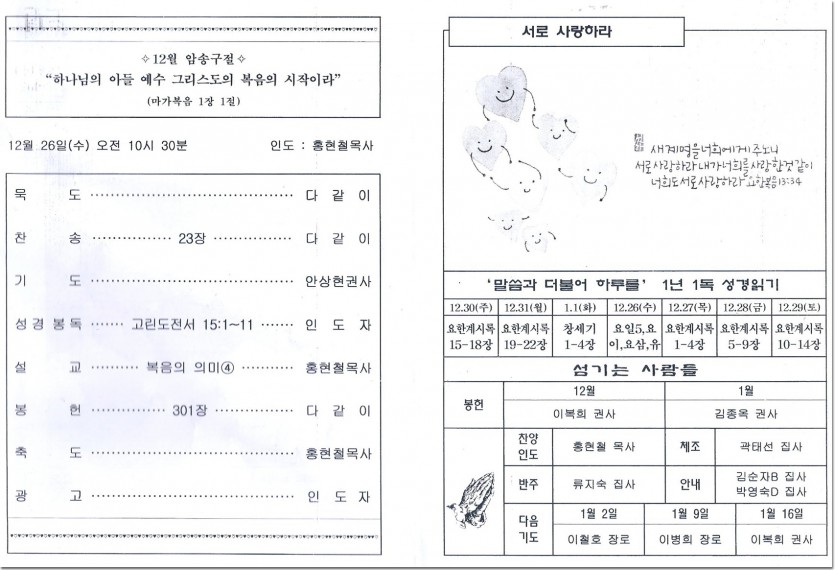 ✧12월 암송구절✧
“하나님의 아들 예수 그리스도의 복음의 시작이라”
(마가복음 1장 1절)
12월 26일(수) 오전 10시 30분 인도 : 홍현철목사
묵 도 다 같 이
찬 송 23장 다 같 이
기 도 안상현권사
성경봉독 고린도전서 15:1~11 인 도 자
설 교 복음의 의미④ 홍현철목사
봉 헌 301장 다 같 이
축 도 홍현철목사
광 고 인 도 자
서로 사랑하라
새 계명을 너희에게 주노니
서로 사랑하라 내가 너희를 사랑한 것 같이
너희도 서로 사랑하라 요한복음 13:34
‘말씀과 더불어 하루를’ 1년 1독 성경읽기
12.30(주) 12.31(월) 1.1(화) 12.26(수) 12.27(목) 12.28(금) 12.29(토)
요한계시록 요한계시록 창세기 요일5,요 요한계시록 요한계시록 요한계시록
15-18장 19-22장 1-4장 이,요삼,유 1-4장 5-9장 10-14장
섬기는 사람들
봉헌 12월 1월
이복희 권사 김종옥 권사
찬양
인도 홍현철 목사 제조 곽태선 집사
반주 류지숙 집사 안내 김순자B 집사
박영숙D 집사
다음
기도 1월 2일 1월 9일 1월 16일
이철호 장로 이병희 장로 이복희 권사